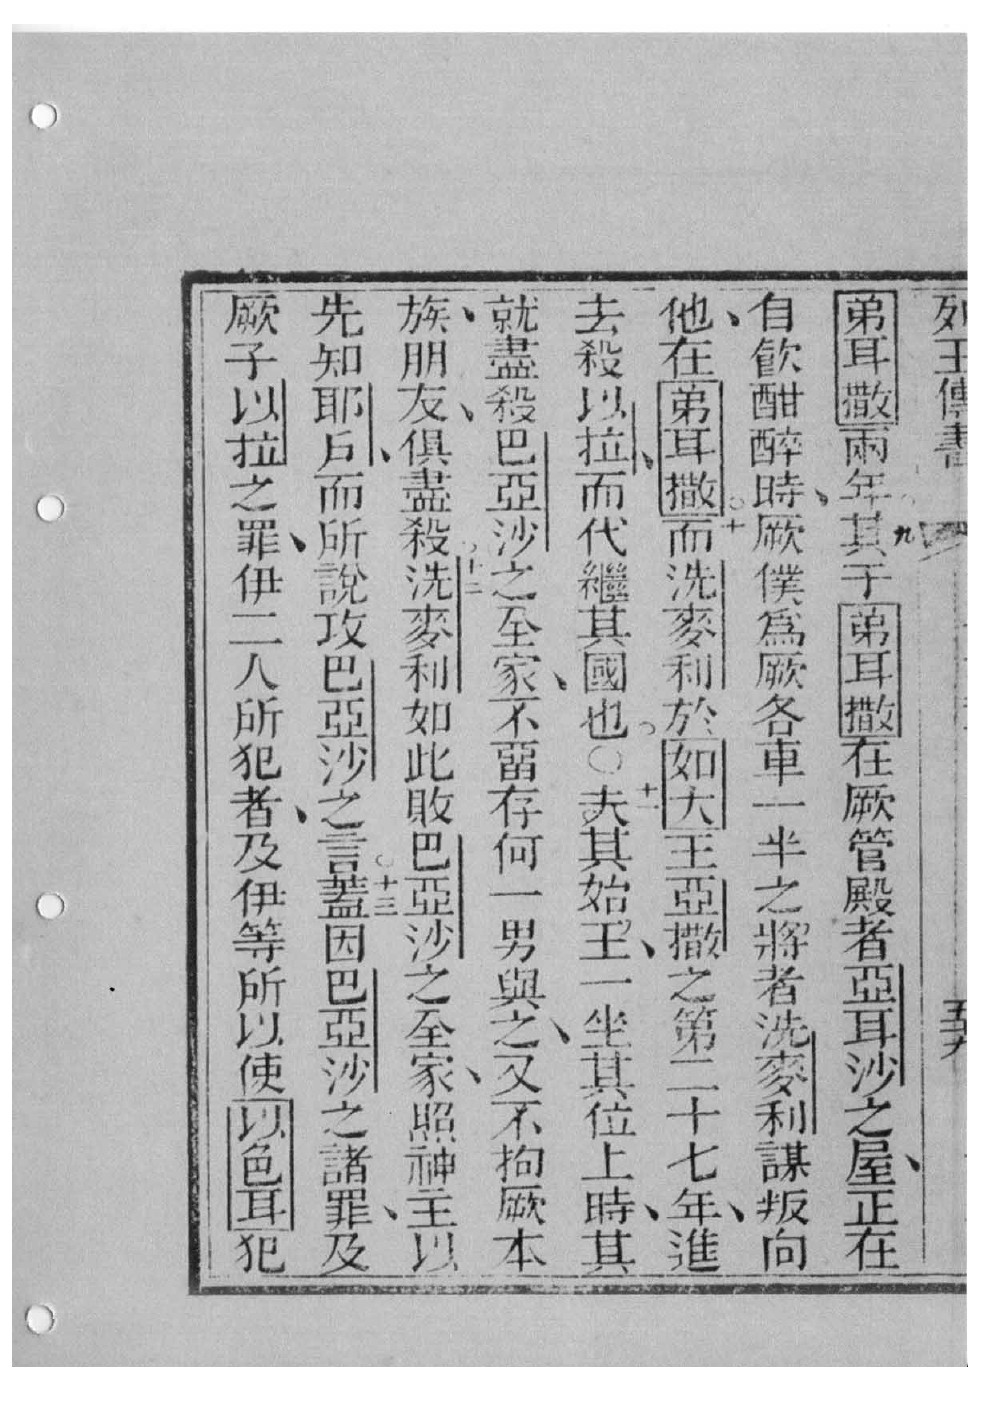 列王傳書
弟耳撒兩年。九其于弟耳撒在厥管殿者亞耳沙之屋、正在
自飲酣醉時、厥僕爲厥各車一半之將者洗麥利謀叛向
他、在弟耳撒。十而洗麥利於如大王亞撒之第二十七年、進
去殺以拉、而代繼其國也。〇十一夫其始王、一坐其位上時、其
就盡殺巴亞沙之至家、不畱存何一男與之、又不拘厥本
族、朋友、俱盡殺。十二洗麥利如此敗巴亞沙之至家、照神主以
先知耶戶、而所說攻巴亞沙之言。十三蓋因巴亞沙之諸罪、及
厥子以拉之罪、伊二人所犯者、及伊等所以使以色耳犯